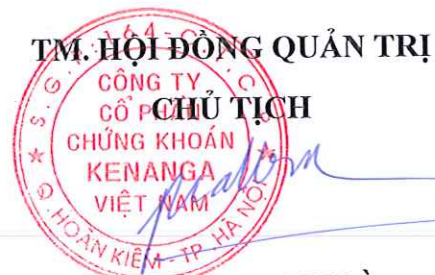 TM. HỘI ĐỒNG QUẢN TRỊ
CHỦ TỊCH
CÔNG TY
CỔ PHẦN
CHỨNG KHOÁN
KENANGA
VIỆT NAM
Q. HOÀN KIẾM - TP. HÀ NỘI